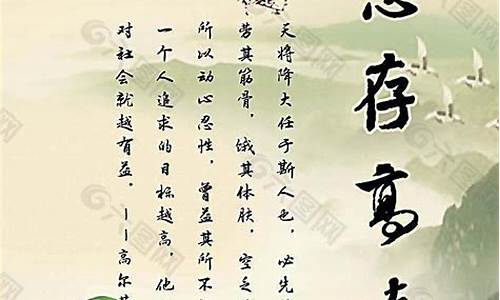 志存高
天将降大任于斯人也，必先
劳其筋骨，饿其体肤，空乏
所以动心忍性，曾益其所不
一个人追求的目标越高，他
对社会就越有益。——高尔基